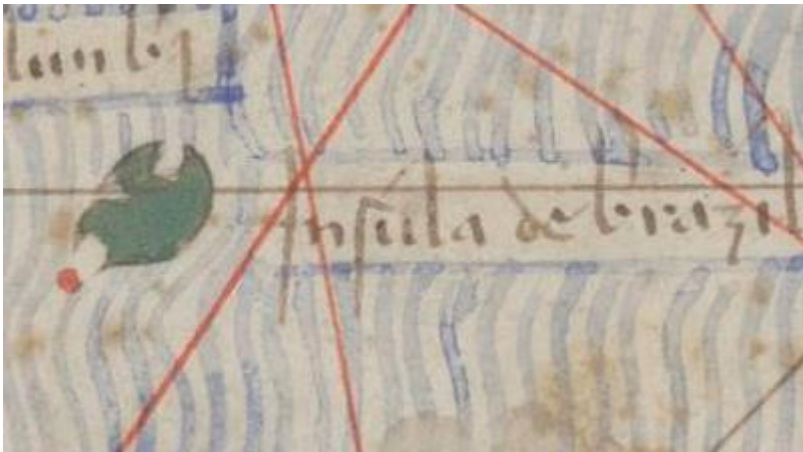 Insula de brazil